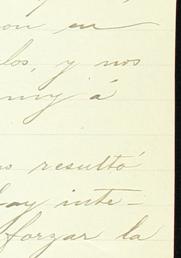 on en
los, y nos
my á
resultó
hay inte-
forzar la